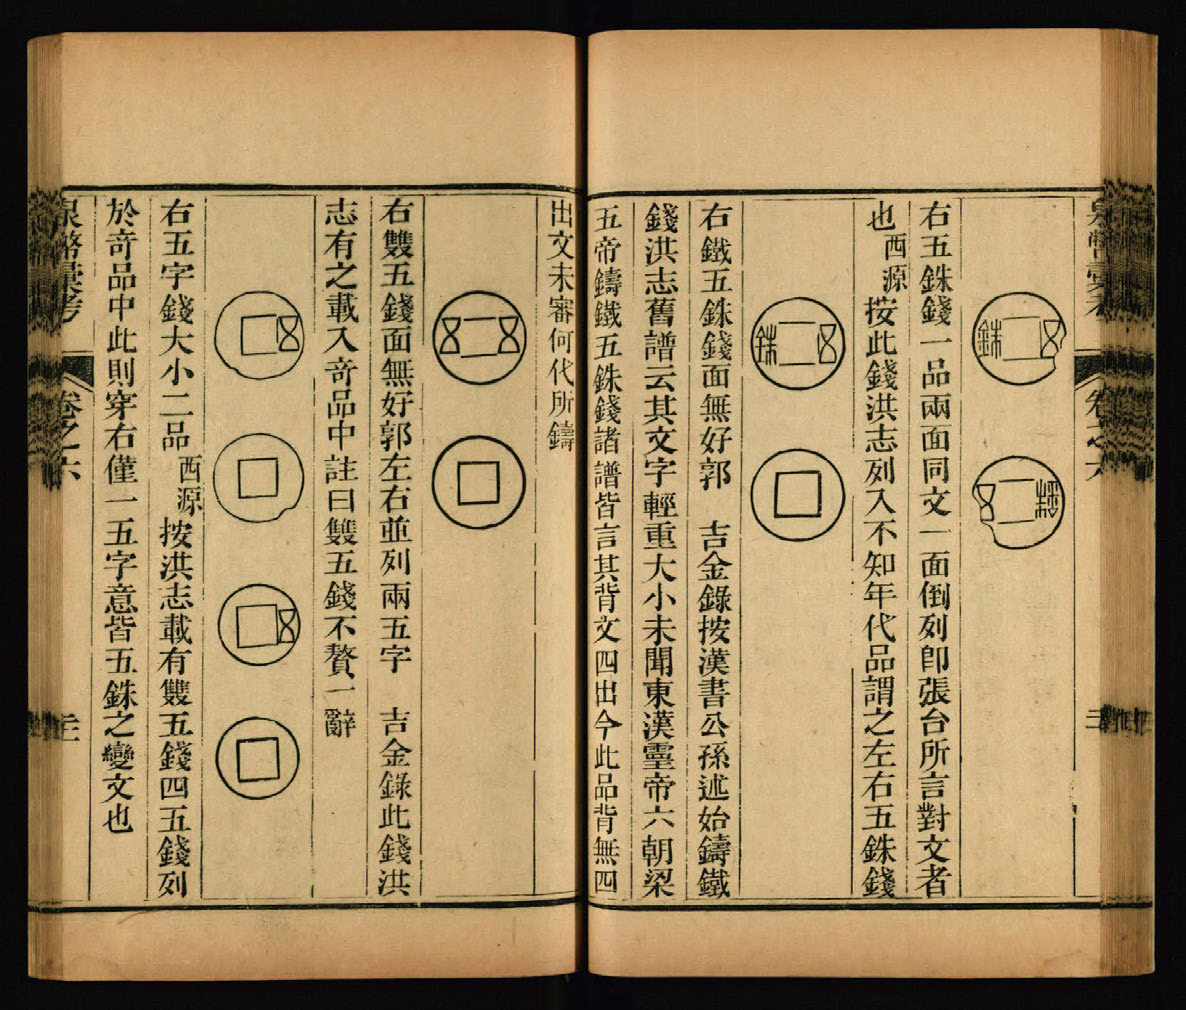 五銖
五銖
右五銖錢一品兩面同文一面倒列卽張台所言對文者
也西源按此錢洪志列入不知年代品謂之左右五銖錢
五銖
右鐵五銖錢面無好郭　吉金錄按漢書公孫述始鑄鐵
錢洪志舊譜云其文字輕重大小未聞東漢靈帝六朝梁
五帝鑄鐵五銖錢諸譜皆言其背文四出今此品背無四
出文未審何代所鑄
五五
右雙五錢面無好郭左右並列兩五字　吉金錄此錢洪
志有之載入竒品中註曰雙五錢不贅一辭
五
五
右五字錢大小二品西源按洪志載有雙五錢四五錢列
於竒品中此則穿右僅一五字意皆五銖之變文也
泉幣彙考　卷之六